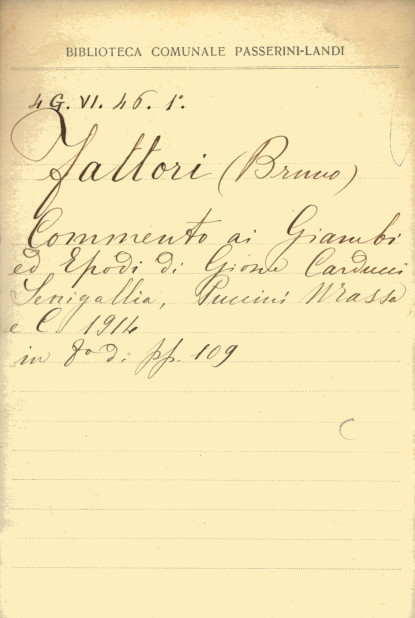 BIBLIOTECA COMUNALE PASSERINI-LANDI
4 G. VI. 46. 1º.
Fattori (Bruno)
Commento ai Giambi
ed Epodi di Giosue Carducci
Senigallia, Puccini Massa
e C 1914
in 8º di pp. 109